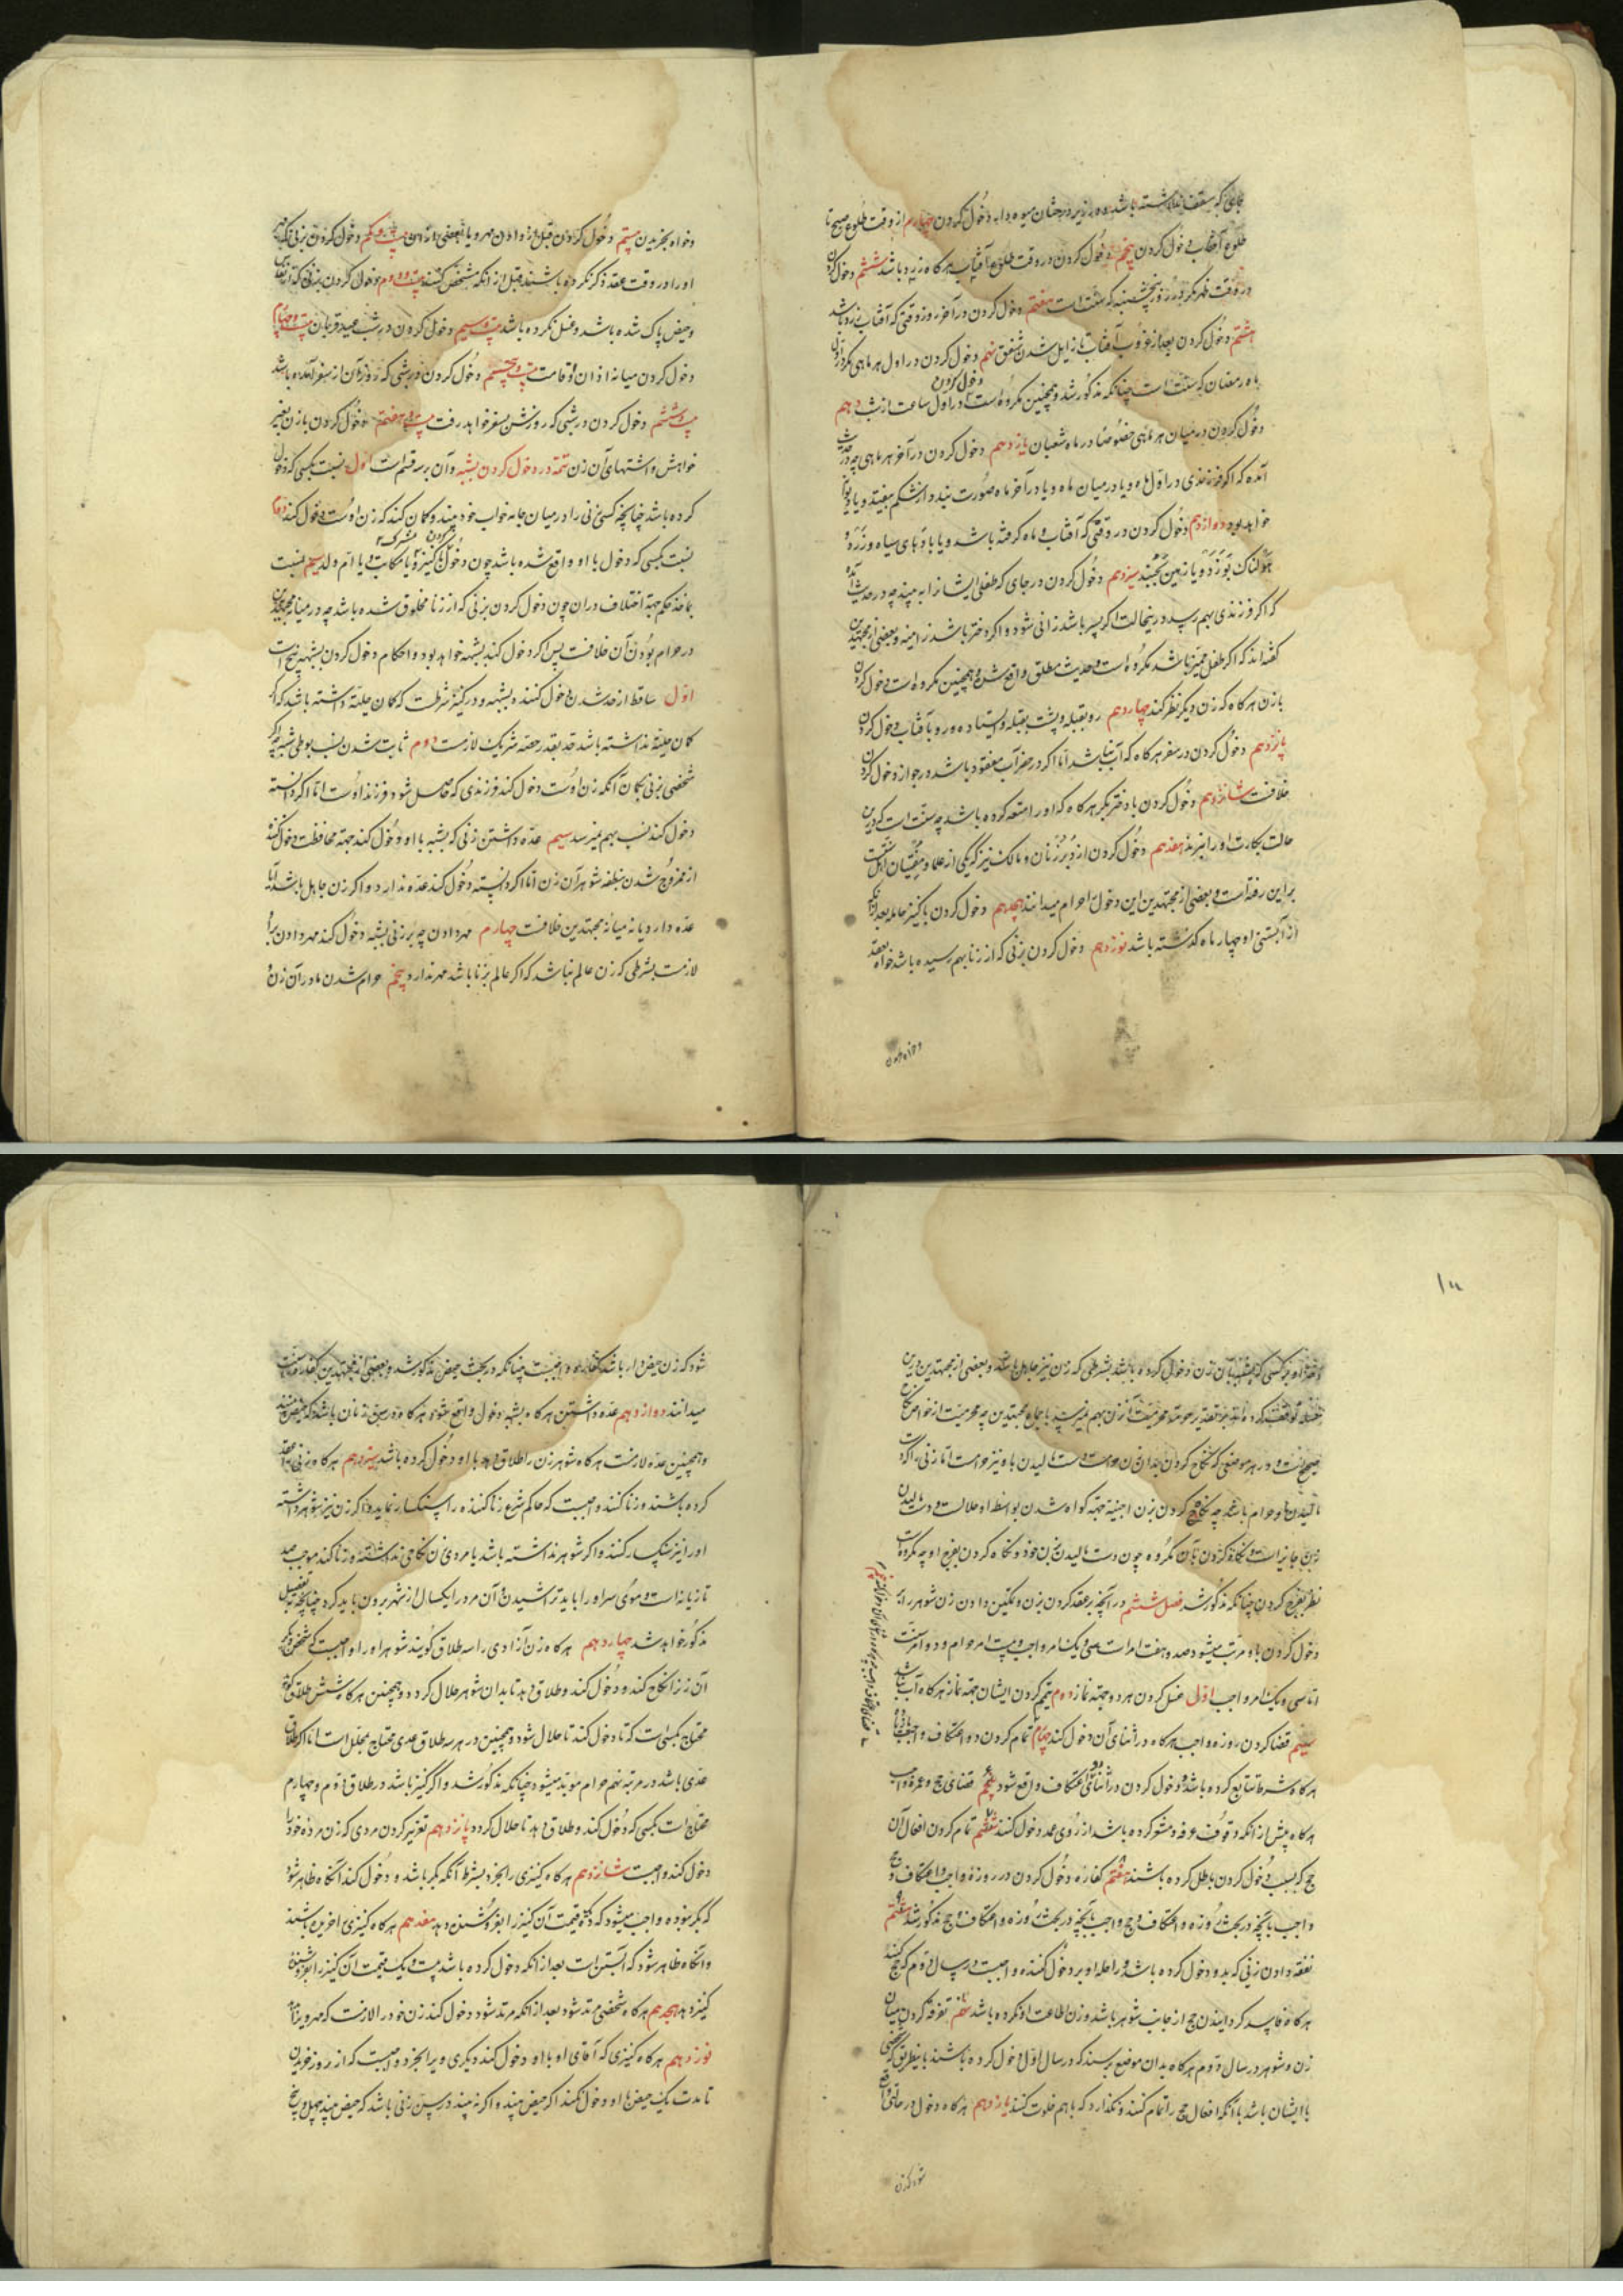 جائی که سقف نداشته باشد و در زیر درختان میوه دار دخول کردن چهارم از وقت طلوع صبح تا
طلوع آفتاب دخول کردن پنجم دخول کردن در وقت طلوع آفتاب هرگاه زرد باشد ششم دخول کردن
در وقت ظهر مگر در روز پنجشنبه که سنت است هفتم دخول کردن در آخر روز وقتی که آفتاب زرد باشد
هشتم دخول کردن بعد از غروب آفتاب تا زایل شدن شفق نهم دخول کردن در اول هر ماهی مگر در اول
ماه رمضان که سنت است چنانکه مذکور شد و همچنین مکروه است دخول کردن در اول ساعت از شب دهم
دخول کردن در میان هر ماهی خصوصا در ماه شعبان یازدهم دخول کردن در آخر هر ماهی چه در حدیث
آمده که اگر فرزندی در اول ماه و یا در میان ماه و یا در آخر ماه صورت بندد از شکم بیفتد و یا دیوانه
خواهد بود دوازدهم دخول کردن در وقتی که آفتاب و ماه گرفته باشد و یا بادهای سیاه و زرد و
هولناک بوزد و یا زمین بجنبد سیزدهم دخول کردن در جای که طفلی ایشانرا به بیند چه در حدیث آمده
که اگر فرزندی بهم رسد در ینحالت اگر پسر باشد زانی شود و اگر دختر باشد زانیه و بعضی از مجتهدین
گفته‌اند که اگر طفل ممیز باشد مکروه است و حدیث مطلق واقع شده و همچنین مکروه است دخول کردن
بازن هرگاه که زن دیگر نظر کند چهاردهم رو بقبله و پشت بقبله و ایستاده و رو بآفتاب دخول کردن
پانزدهم دخول کردن در سفر هرگاه که آب نباشد اما اگر در حضر آب مفقود باشد در جواز دخول کردن
خلافست شانزدهم دخول کردن با دختر بکر هرگاه که او را متعه کرده باشد چه سنت است که درین
حالت بکارت او را نبرند هفدهم دخول کردن از دبر زنان و مالک نیز که یکی از علما و مفتیان اهل سنت
بر این رفته است و بعضی از مجتهدین این دخول را حرام میدانند هجدهم دخول کردن با کنیز حامله بعد از آنکه
از آبستنی او چهار ماه گذشته باشد نوزدهم دخول کردن بزنی که از زنا بهم رسیده باشد خواه بعقد
و خواه بخریدن
و خواه بخریدن بیستم دخول کردن قبل از دادن مهر و یا بعضی از آن بیست و یکم دخول کردن بزنی که مهر
او را در وقت عقد ذکر نکرده باشند قبل از آنکه مشخص کنند بیست و دوم دخول کردن بزنی که از نفاس
و حیض پاک شده باشد و غسل نکرده باشد بیست و سیم دخول کردن در شب عید قربان بیست و چهارم
دخول کردن میانه اذان و اقامت بیست و پنجم دخول کردن در شبی که روز آن از سفر آمده باشد
بیست و ششم دخول کردن در شبی که روزش بسفر خواهد رفت بیست و هفتم دخول کردن بازن بغیر
خواهش و اشتهای آن زن تتمه در دخول کردن بشبه و آن بر سه قسم است اول نسبت بکسی که دخول
کرده باشد چنانچه کسی زنی را در میان جامه خواب خود بیند و گمان کند که زن اوست دخول کند دوم
نسبت بکسی که دخول با او واقع شده باشد چون دخول کردن کنیز مشترک و یا مکاتب و یا ام ولد سیم نسبت
بماخذ حکم جهة اختلاف در ان چون دخول کردن بزنی که از زنا مخلوق شده باشد چه در میانه مجتهدین
در حرام بودن آن خلافست پس اگر دخول کند بشبهه خواهد بود و احکام دخول کردن بشبهه پنج است
اول ساقط از حد شدن دخول کننده بشبهه و در کنیز شرطست که گمان حلیت داشته باشد که اگر
گمان حلیت نداشته باشد حد بقدر حصه شریک لازمست دوم ثابت شدن نسب بوطی شبهه چه اگر
شخصی بزنی بگمان آنکه زن اوست دخول کند فرزندی که حاصل شود فرزند اوست اما اگر دانسته
دخول کند نسب بهم نمیرسد سیم عده داشتن زنی که بشبه با او دخول کند جهة محافظت دخول کننده
از ممزوج شدن بنطفه شوهر آن زن اما اگر دانسته دخول کند عده ندارد و اگر زن جاهل باشد آیا
عده دارد یا نه میانه مجتهدین خلافست چهارم مهر دادن چه بر زنی بشبه دخول کند مهر دادن برو
لازمست بشرطی که زن عالم نباشد که اگر عالم بزنا باشد مهر ندارد پنجم حرام شدن مادر آن زن و
۱۰۰
دختر او بر کسی که بشبه بآن زن دخول کرده باشد بشرطی که زن نیز جاهل باشد و بعضی از مجتهدین درین
صحیح نیست و در هر موضعی که نکاح کردن بدان زن حرامست دست مالیدن باو نیز حرامست اما زنی که دست
مالیدن باو حرام باشد چه نکاح کردن بزن اجنبیه جهة گواه شدن بواسطه او حلالست و دست مالیدن
نظر بفرج کردن چنانکه مذکور شد فصل ششم در آنچه بر عقد کردن بزن و تمکین دادن زن شوهر را بر
دخول کردن باو مترتب میشود صد و هفت امر است سی و یک امر واجب و بیست امر حرام و دو امر سنت
اما سی و یک امر واجب اول غسل کردن هر دو جهة نماز دوم تیمم کردن ایشان جهة نماز هرگاه آب نباشد
سیم قضا کردن روزه واجب هرگاه در اثنای آن دخول کند چهارم تمام کردن دو اعتکاف واجب
هرگاه شرط تتابع کرده باشد و دخول کردن در اثنای اعتکاف واقع شود پنجم قضای حج و عمره واجب
هرگاه پیش از آنکه وقوف عرفه و مشعر کرده باشد از روی عمد دخول کند ششم تمام کردن افعال آن
حج که بسبب دخول کردن باطل کرده باشند هفتم کفاره دخول کردن در روزه واجب و اعتکاف و حج
واجب بآنچه در بحث روزه و اعتکاف و حج مذکور شد هشتم
نفقه دادن زنی که بدو دخول کرده باشد و راحله او بر دخول کننده واجبست در سال دوم که حج کند
هرگاه فاسد گردانیدن حج از جانب شوهر باشد و زن اطاعت او نکرده باشد نهم تفرقه کردن میان
زن و شوهر در سال دوم هرگاه بدان موضع برسند که در سال اول دخول کرده باشند باینطریق که شخصی
با ایشان باشد تا آنکه افعال حج را تمام کنند و نگذارد که با هم خلوت کنند یازدهم هرگاه دخول در حالتی واقع
شود که زن
شود که زن حیض دار باشد کفاره واجبست چنانکه در بحث حیض مذکور شد و بعضی از مجتهدین کفاره را سنت
میدانند دوازدهم عده داشتن هرگاه بشبه دخول واقع شود هرگاه در سن زنان باشد که حیض بینند
و همچنین عده لازمست هرگاه شوهر زن را طلاق دهد با او دخول کرده باشد سیزدهم هرگاه زنی را عقد
کرده باشند و زنا کند واجبست که حاکم شرع زنا کننده را سنگسار نماید و اگر زن نیز شوهر داشته
او را نیز سنگسار کنند و اگر شوهر نداشته باشد یا مردی زن نکاحی نداشته و زنا کند موجب صد
تازیانه است و موی سر او را باید تراشیدن و آن مرد را یکسال از شهر بیرون باید کرد چنانچه بتفصیل
مذکور خواهد شد چهاردهم هرگاه زن آزادی را سه طلاق گویند شوهر او را واجبست که شخص دیگر
آن زن را نکاح کند و دخول کند و طلاق دهد تا بدان شوهر حلال گردد و همچنین هرگاه شش طلاق گوید
محتاج بکسی است که تا دخول کند تا حلال شود و همچنین در هر سه طلاق عدی محتاج بمحلل است اما اگر طلاق
عدی باشد در مرتبه نهم حرام موبد میشود چنانکه مذکور شد و اگر کنیز باشد در طلاق دوم و چهارم
محتاج است بکسی که دخول کند و طلاق دهد تا حلال گردد پانزدهم تعزیر کردن مردی که زن مرده خود را
دخول کند واجبست شانزدهم هرگاه کنیزی را بخرد بشرط آنکه بکر باشد و دخول کند آنگاه ظاهر شود
که بکر نبوده واجب میشود که ده یک قیمت آن کنیز را بفروشنده بدهد هفدهم هرگاه کنیزی را خریده باشند
و آنگاه ظاهر شود که آبستن است بعد از آنکه دخول کرده باشد بیست یک قیمت آن کنیز را بفروشنده
کنیز دهد هجدهم هرگاه شخصی مرتد شود بعد از آنکه مرتد شود دخول کند زن خود را لازمست که مهر ویرا بدهد
نوزدهم هرگاه کنیزی که آقای او با او دخول کند دیگری ویرا بخرد واجبست که از روز خریدن
تا مدت یک حیض با او دخول نکند اگر حیض بیند و اگر نه بیند در سن زنی باشد که حیض بیند چهل و پنج